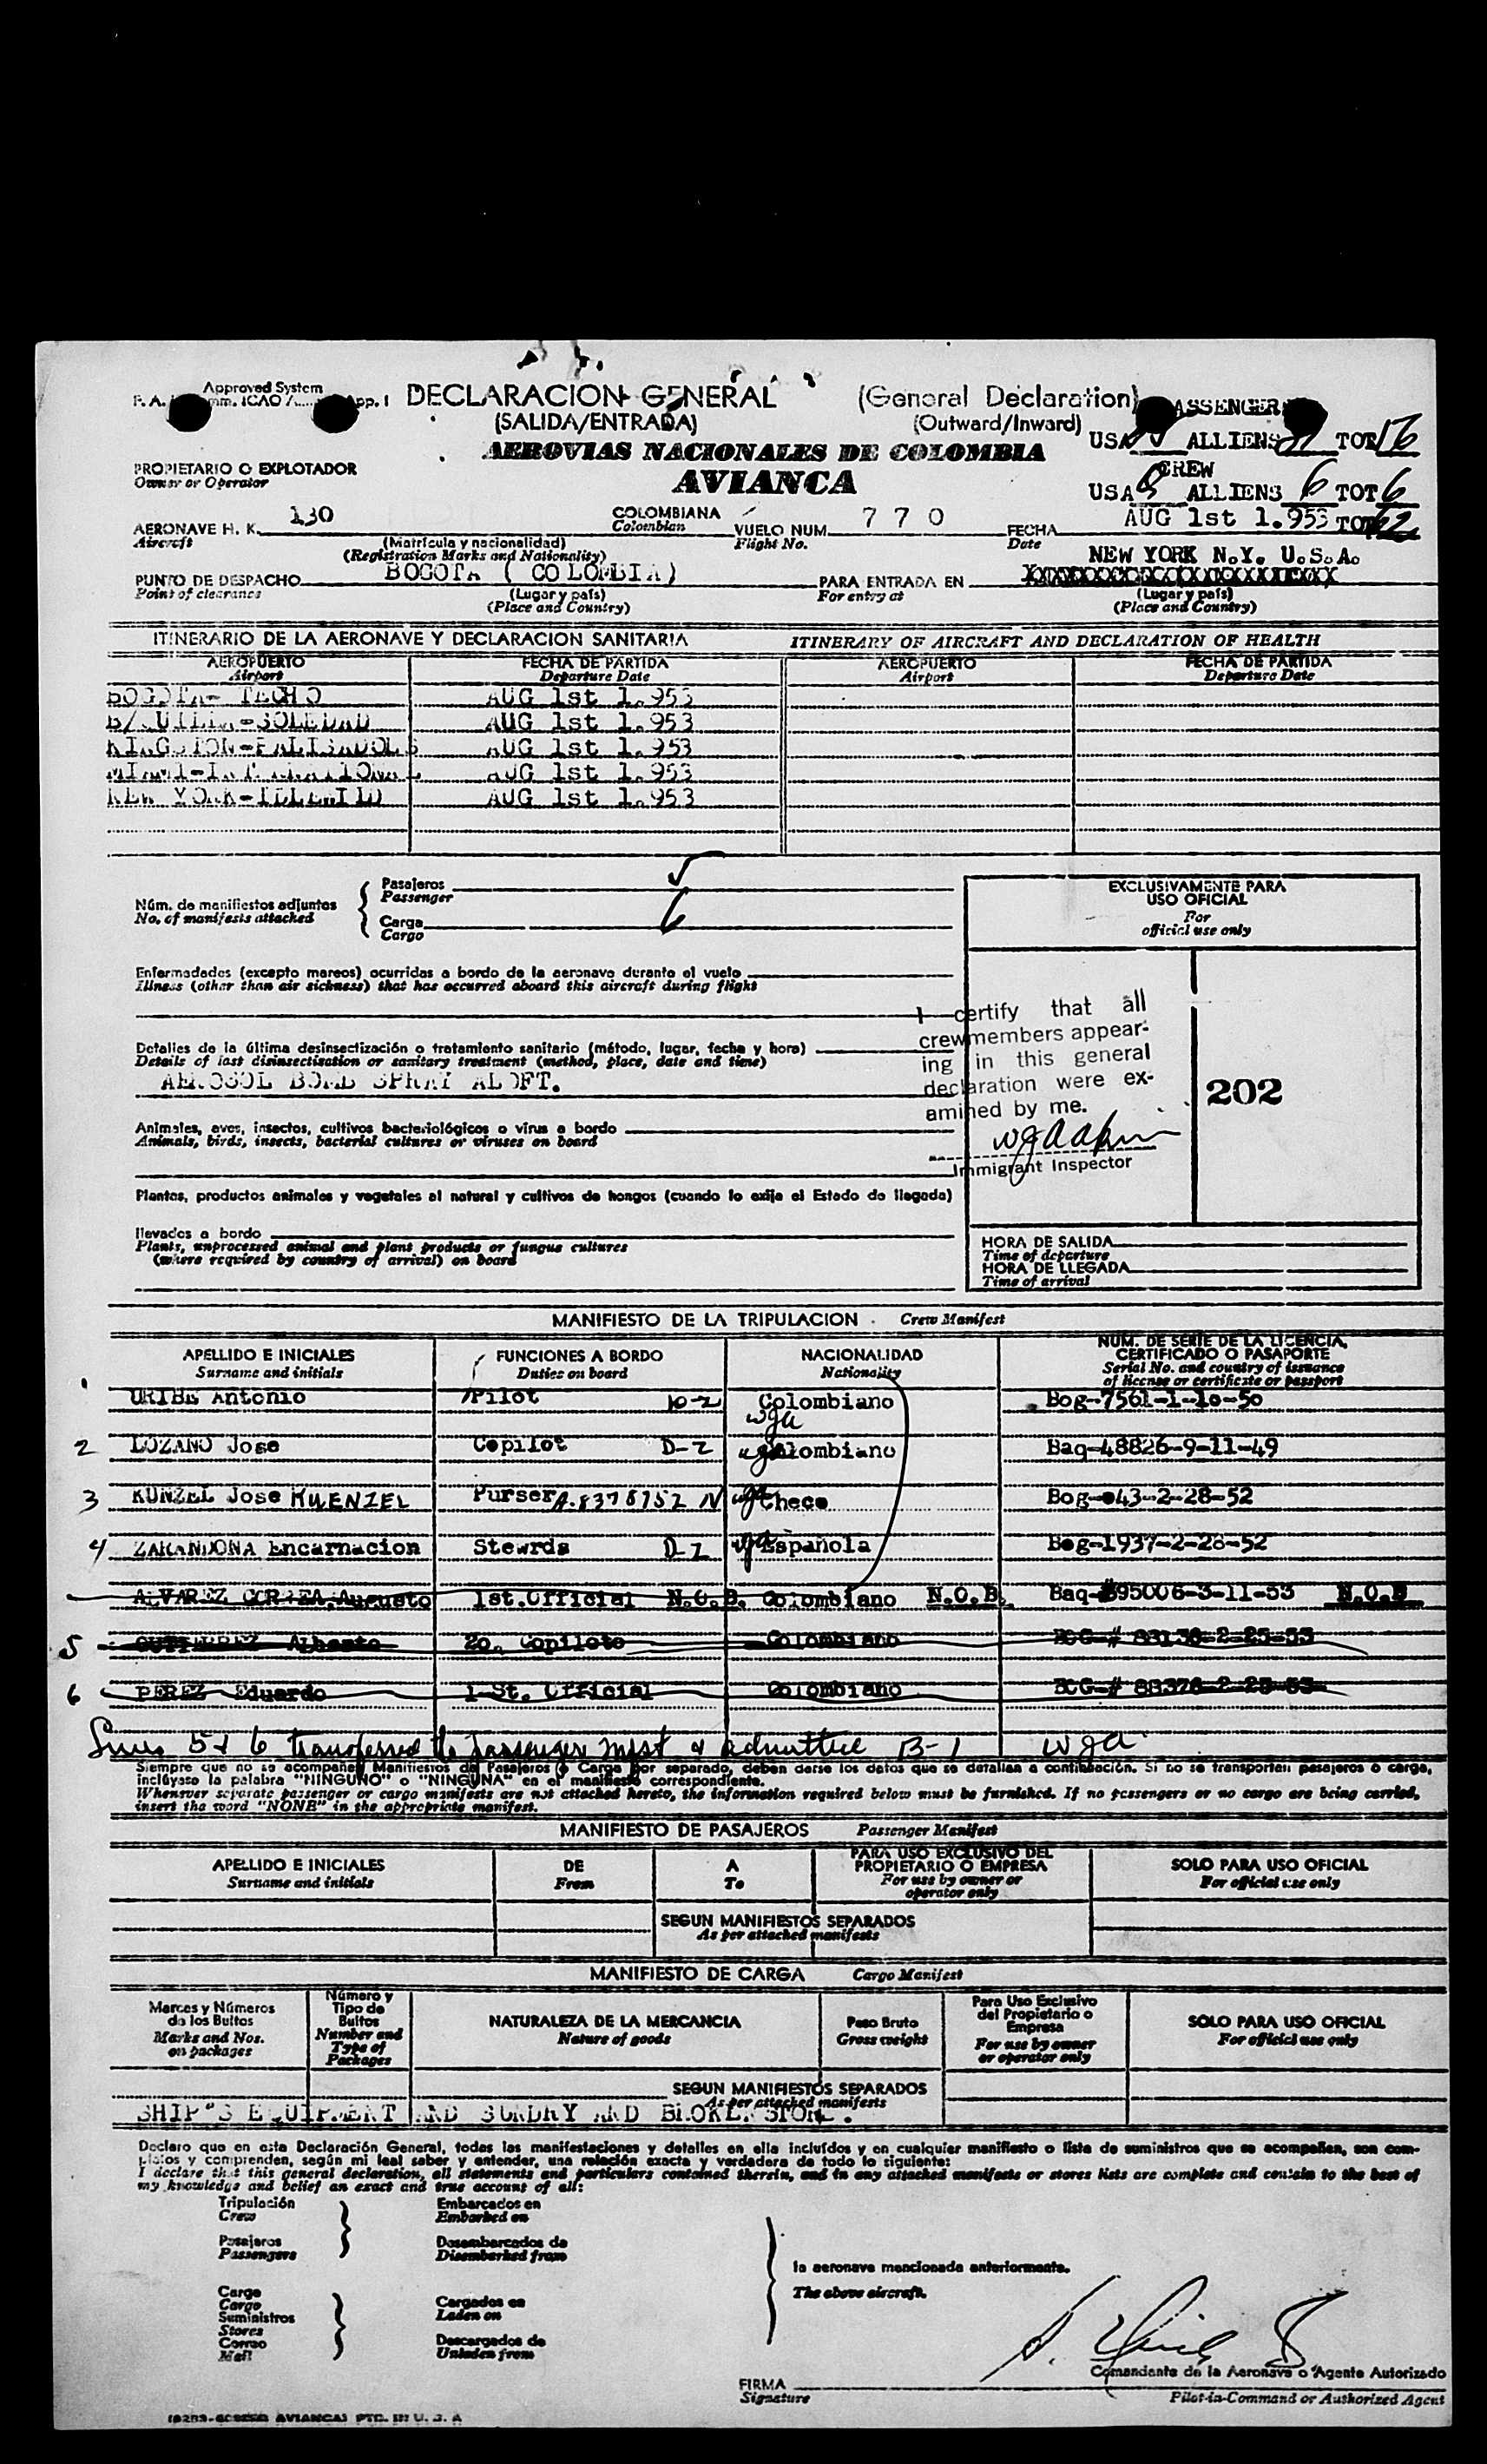 Approved System
DECLARACION GENERAL (General Declaration)
(SALIDA/ENTRADA) (Outward/Inward)
AEROVIAS NACIONALES DE COLOMBIA
AVIANCA
USA ALLIENS TOT 56
CREW
USA 0 ALLIENS 6 TOT 6
PROPIETARIO O EXPLOTADOR
Owner or Operator
AERONAVE H. K. 130 COLOMBIANA VUELO NUM. 7 7 0 FECHA AUG 1st 1.953 TOT 62
Aircraft (Matrícula y nacionalidad) Colombian Flight No. Date
(Registration Marks and Nationality)
NEW YORK N.Y. U.S.A.
PUNTO DE DESPACHO BOGOTA ( COLOMBIA) PARA ENTRADA EN
Point of clearance (Lugar y país) For entry at (Lugar y país)
(Place and Country) (Place and Country)
ITINERARIO DE LA AERONAVE Y DECLARACION SANITARIA ITINERARY OF AIRCRAFT AND DECLARATION OF HEALTH
AEROPUERTO FECHA DE PARTIDA AEROPUERTO FECHA DE PARTIDA
Airport Departure Date Airport Departure Date
BOGOTA- TECHO AUG 1st 1.953
B/QUILLA-SOLEDAD AUG 1st 1.953
KINGSTON-PALISADOES AUG 1st 1.953
MIAMI-INTERNATIONAL AUG 1st 1.953
NEW YORK-IDLEWILD AUG 1st 1.953
Pasajeros
Passenger
Núm. de manifiestos adjuntos
No. of manifests attached
Carga
Cargo
EXCLUSIVAMENTE PARA
USO OFICIAL
For
official use only
Enfermedades (excepto mareos) ocurridas a bordo de la aeronave durante el vuelo
Illness (other than air sickness) that has occurred aboard this aircraft during flight
Detalles de la última desinsectización o tratamiento sanitario (método, lugar, fecha y hora)
Details of last disinsectisation or sanitary treatment (method, place, date and time)
AEROSOL BOMB SPRAY ALOFT.
I certify that all
crewmembers appear-
ing in this general
declaration were ex-
amined by me.
Immigrant Inspector
202
Animales, aves, insectos, cultivos bacteriológicos o virus a bordo
Animals, birds, insects, bacterial cultures or viruses on board
Plantas, productos animales y vegetales al natural y cultivos de hongos (cuando lo exija el Estado de llegada)
llevados a bordo
Plants, unprocessed animal and plant products or fungus cultures
(where required by country of arrival) on board
HORA DE SALIDA
Time of departure
HORA DE LLEGADA
Time of arrival
MANIFIESTO DE LA TRIPULACION Crew Manifest
APELLIDO E INICIALES FUNCIONES A BORDO NACIONALIDAD NUM. DE SERIE DE LA LICENCIA, CERTIFICADO O PASAPORTE
Surname and initials Duties on board Nationality Serial No. and country of issuance of license or certificate or passport
URIBE Antonio Pilot D-2 Colombiano Bog-7561-1-10-50
wga
2 LOZANO Jose Copilot D-2 Colombiano Baq-48826-9-11-49
3 KUNZEL Jose KUENZEL Purser A-8378752 N wga Checo Bog-043-2-28-52
4 ZARANDONA Encarnacion Stewrds D-2 wga Española Bog-1937-2-28-52
ALVAREZ CORREA, Augusto 1st.Official N.O.B. Colombiano N.O.B. Baq-#95006-3-11-53 N.O.B
5 GUTIERREZ Alberto 2o. Copiloto Colombiano BOG-# 83138-2-25-53
6 PEREZ Eduardo 1 St. Official Colombiano BOG-# 88376-2-25-53
Lines 5 & 6 transferred to passenger mfst & admitted B-1 wga
Siempre que no se acompañen Manifiestos de Pasajeros o Carga por separado, deben darse los datos que se detallan a continuación. Si no se transportan pasajeros o carga,
inclúyase la palabra "NINGUNO" o "NINGUNA" en el manifiesto correspondiente.
Whenever separate passenger or cargo manifests are not attached hereto, the information required below must be furnished. If no passengers or no cargo are being carried,
insert the word "NONE" in the appropriate manifest.
MANIFIESTO DE PASAJEROS Passenger Manifest
APELLIDO E INICIALES DE A PARA USO EXCLUSIVO DEL PROPIETARIO O EMPRESA SOLO PARA USO OFICIAL
Surname and initials From To For use by owner or operator only For official use only
SEGUN MANIFIESTOS SEPARADOS
As per attached manifests
MANIFIESTO DE CARGA Cargo Manifest
Marcas y Números de los Bultos Número y Tipo de Bultos NATURALEZA DE LA MERCANCIA Peso Bruto Para Uso Exclusivo del Propietario o Empresa SOLO PARA USO OFICIAL
Marks and Nos. on packages Number and Type of Packages Nature of goods Gross weight For use by owner or operator only For official use only
SEGUN MANIFIESTOS SEPARADOS
As per attached manifests
SHIP'S EQUIPMENT AND SUNDRY AND BROKEN STORE.
Declaro que en esta Declaración General, todas las manifestaciones y detalles en ella incluídos y en cualquier manifiesto o lista de suministros que se acompañen, son com-
pletos y comprenden, según mi leal saber y entender, una relación exacta y verdadera de todo lo siguiente:
I declare that this general declaration, all statements and particulars contained therein, and in any attached manifests or stores lists are complete and contain to the best of
my knowledge and belief an exact and true account of all:
Tripulación Embarcados en
Crew Embarked on
Pasajeros Desembarcados de
Passengers Disembarked from
la aeronave mencionada anteriormente.
The above aircraft.
Carga
Cargo Cargados en
Suministros Laden on
Stores
Correo Descargados de
Mail Unladen from
Comandante de la Aeronave o Agente Autorizado
FIRMA
Signature Pilot-in-Command or Authorized Agent